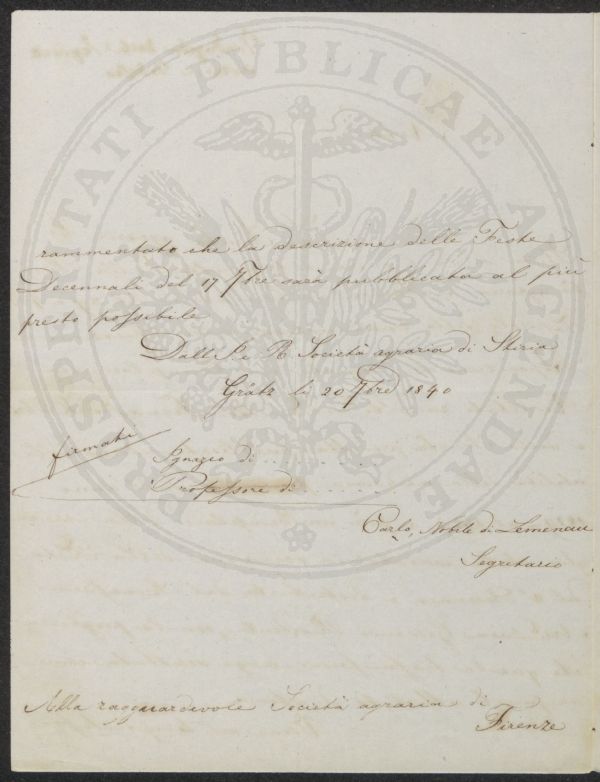 PROSPERITATI PVBLICAE AVGENDAE
rammentato che la descrizione delle Feste
Decennali del 17 7bre sarà pubblicata al più
presto possibile
Dall' I. e R. Società agraria di Stiria
Grätz li 20 7bre 1840
firmati
Ignazio di . . . . . . . . .
Professore di . . . . . . .
Carlo, Nobile di
Segretario
Alla ragguardevole Società agraria di
Firenze